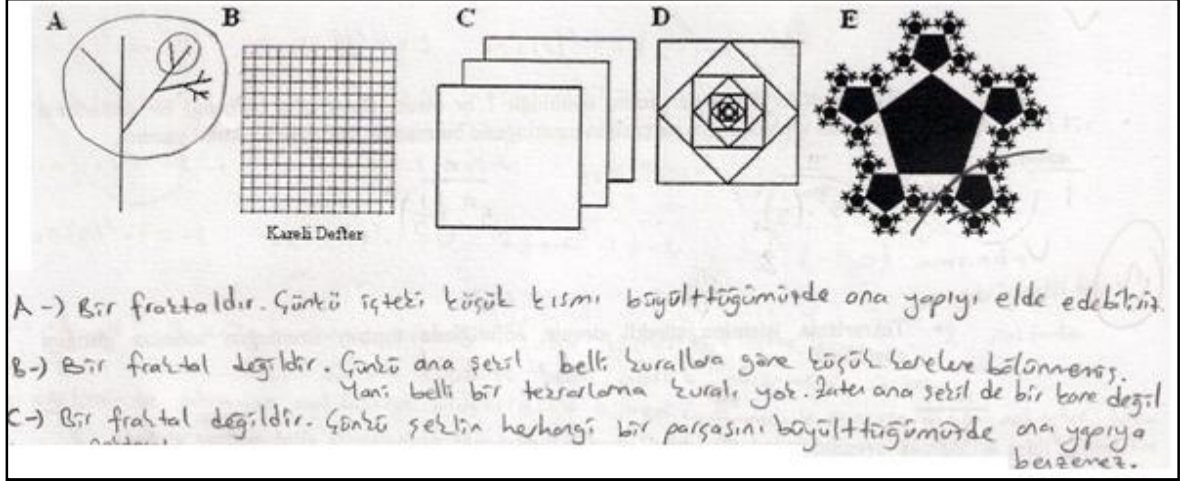 A B C D E
Kareli Defter
A -) Bir fraktaldır. Çünkü içteki küçük kısmı büyülttüğümüzde ana yapıyı elde edebiliriz.
B-) Bir fraktal değildir. Çünkü ana şekil belli kurallara göre küçük karelere bölünmemiş.
Yani belli bir tekrarlama kuralı yok. Zaten ana şekil de bir kare değil
C-) Bir fraktal değildir. Çünkü şeklin herhangi bir parçasını büyülttüğümüzde ana yapıya
benzemez.